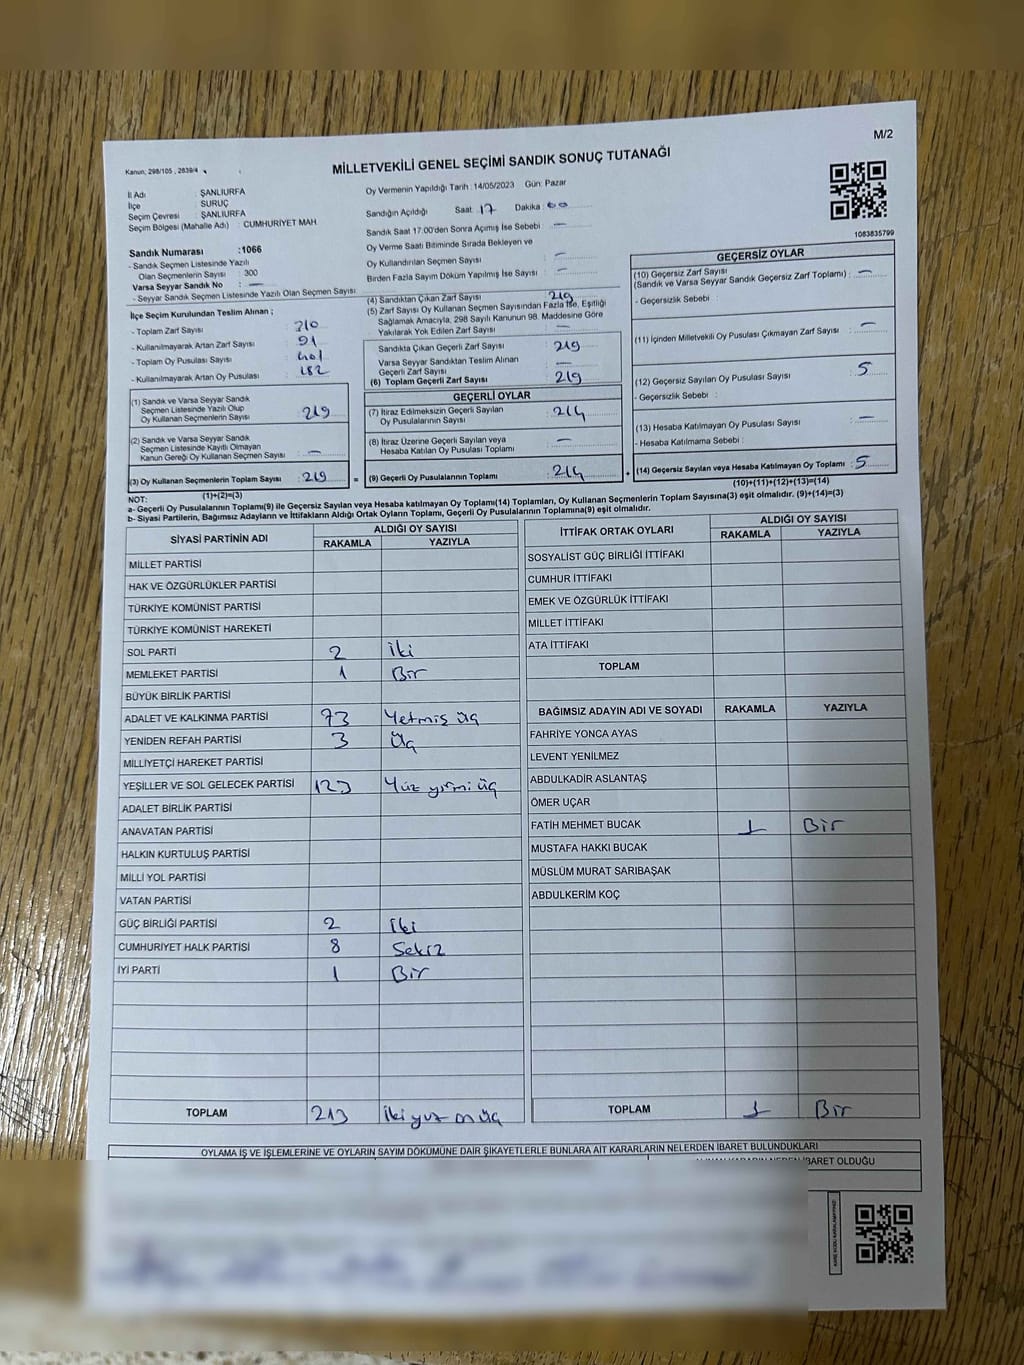 M/2
Kanun; 298/105 , 2839/4
MİLLETVEKİLİ GENEL SEÇİMİ SANDIK SONUÇ TUTANAĞI
1083835799
İl Adı : ŞANLIURFA
İlçe : SURUÇ
Seçim Çevresi : ŞANLIURFA
Seçim Bölgesi (Mahalle Adı) : CUMHURİYET MAH
Sandık Numarası :1066
- Sandık Seçmen Listesinde Yazılı
Olan Seçmenlerin Sayısı : 300
Varsa Seyyar Sandık No : —
- Seyyar Sandık Seçmen Listesinde Yazılı Olan Seçmen Sayısı
Oy Vermenin Yapıldığı Tarih :14/05/2023 Gün: Pazar
Sandığın Açıldığı Saat: 17 Dakika : 00
Sandık Saat 17.00'den Sonra Açımış İse Sebebi : —
Oy Verme Saati Bitiminde Sırada Bekleyen ve
Oy Kullandırılan Seçmen Sayısı : —
Birden Fazla Sayım Döküm Yapılmış İse Sayısı : —
İlçe Seçim Kurulundan Teslim Alınan ;
- Toplam Zarf Sayısı : 310
- Kullanılmayarak Artan Zarf Sayısı : 91
- Toplam Oy Pusulası Sayısı : 401
- Kullanılmayarak Artan Oy Pusulası : 182
(1) Sandık ve Varsa Seyyar Sandık
Seçmen Listesinde Yazılı Olup
Oy Kullanan Seçmenlerin Sayısı : 219
(2) Sandık ve Varsa Seyyar Sandık
Seçmen Listesinde Kayıtlı Olmayan
Kanun Gereği Oy Kullanan Seçmen Sayısı : —
(3) Oy Kullanan Seçmenlerin Toplam Sayısı : 219
(1)+(2)=(3)
(4) Sandıktan Çıkan Zarf Sayısı : 219
(5) Zarf Sayısı Oy Kullanan Seçmen Sayısından Fazla İse, Eşitliği
Sağlamak Amacıyla, 298 Sayılı Kanunun 98. Maddesine Göre
Yakılarak Yok Edilen Zarf Sayısı : —
Sandıkta Çıkan Geçerli Zarf Sayısı : 219
Varsa Seyyar Sandıktan Teslim Alınan
Geçerli Zarf Sayısı : —
(6) Toplam Geçerli Zarf Sayısı : 219
GEÇERLİ OYLAR
(7) İtiraz Edilmeksizin Geçerli Sayılan
Oy Pusulalarının Sayısı : 214
(8) İtiraz Üzerine Geçerli Sayılan veya
Hesaba Katılan Oy Pusulası Toplamı : —
= (9) Geçerli Oy Pusulalarının Toplamı : 214 +
GEÇERSİZ OYLAR
(10) Geçersiz Zarf Sayısı
(Sandık ve Varsa Seyyar Sandık Geçersiz Zarf Toplamı) : —
- Geçersizlik Sebebi :
(11) İçinden Milletvekili Oy Pusulası Çıkmayan Zarf Sayısı : —
(12) Geçersiz Sayılan Oy Pusulası Sayısı : 5
- Geçersizlik Sebebi :
(13) Hesaba Katılmayan Oy Pusulası Sayısı : —
- Hesaba Katılmama Sebebi :
(14) Geçersiz Sayılan veya Hesaba Katılmayan Oy Toplamı : 5
(10)+(11)+(12)+(13)=(14)
NOT:
a- Geçerli Oy Pusulalarının Toplamı(9) ile Geçersiz Sayılan veya Hesaba katılmayan Oy Toplamı(14) Toplamları, Oy Kullanan Seçmenlerin Toplam Sayısına(3) eşit olmalıdır. (9)+(14)=(3)
b- Siyasi Partilerin, Bağımsız Adayların ve İttifakların Aldığı Ortak Oyların Toplamı, Geçerli Oy Pusulalarının Toplamına(9) eşit olmalıdır.
SİYASİ PARTİNİN ADI ALDIĞI OY SAYISI
RAKAMLA YAZIYLA
MİLLET PARTİSİ
HAK VE ÖZGÜRLÜKLER PARTİSİ
TÜRKİYE KOMÜNİST PARTİSİ
TÜRKİYE KOMÜNİST HAREKETİ
SOL PARTİ 2 iki
MEMLEKET PARTİSİ 1 Bir
BÜYÜK BİRLİK PARTİSİ
ADALET VE KALKINMA PARTİSİ 73 Yetmiş üç
YENİDEN REFAH PARTİSİ 3 Üç
MİLLİYETÇİ HAREKET PARTİSİ
YEŞİLLER VE SOL GELECEK PARTİSİ 123 Yüz yirmi üç
ADALET BİRLİK PARTİSİ
ANAVATAN PARTİSİ
HALKIN KURTULUŞ PARTİSİ
MİLLİ YOL PARTİSİ
VATAN PARTİSİ
GÜÇ BİRLİĞİ PARTİSİ 2 iki
CUMHURİYET HALK PARTİSİ 8 Sekiz
İYİ PARTİ 1 Bir
TOPLAM 213 iki yuz on üç
İTTİFAK ORTAK OYLARI ALDIĞI OY SAYISI
RAKAMLA YAZIYLA
SOSYALİST GÜÇ BİRLİĞİ İTTİFAKI
CUMHUR İTTİFAKI
EMEK VE ÖZGÜRLÜK İTTİFAKI
MİLLET İTTİFAKI
ATA İTTİFAKI
TOPLAM
BAĞIMSIZ ADAYIN ADI VE SOYADI RAKAMLA YAZIYLA
FAHRİYE YONCA AYAS
LEVENT YENİLMEZ
ABDULKADİR ASLANTAŞ
ÖMER UÇAR
FATİH MEHMET BUCAK 1 Bir
MUSTAFA HAKKI BUCAK
MÜSLÜM MURAT SARIBAŞAK
ABDULKERİM KOÇ
TOPLAM 1 Bir
OYLAMA İŞ VE İŞLEMLERİNE VE OYLARIN SAYIM DÖKÜMÜNE DAİR ŞİKAYETLERLE BUNLARA AİT KARARLARIN NELERDEN İBARET BULUNDUKLARI
İBARET OLDUĞU